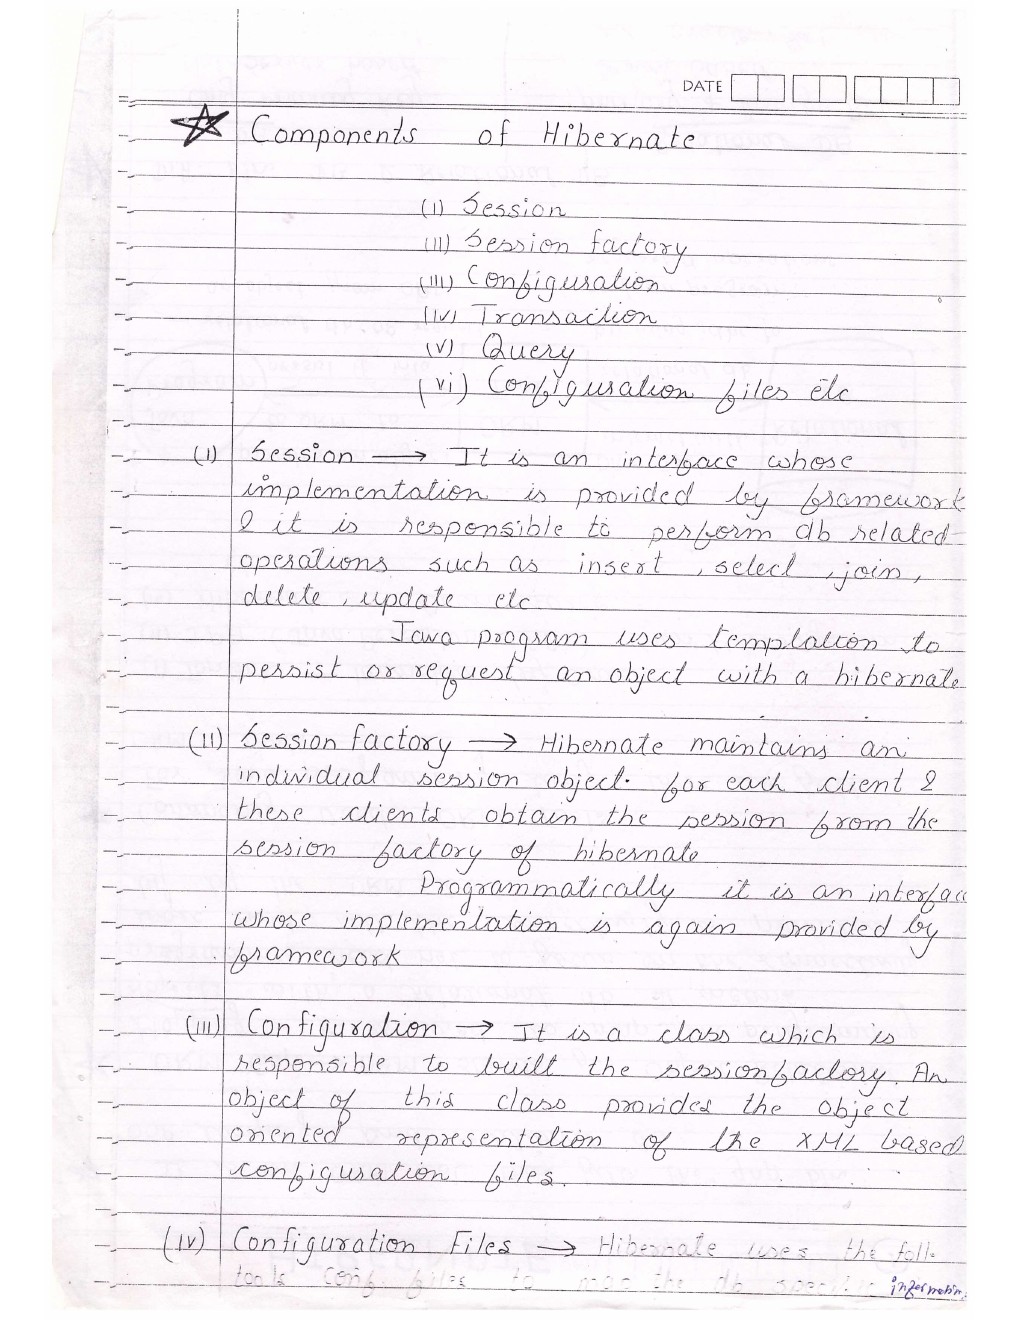 DATE
Components of Hibernate
(i) Session
(ii) Session factory
(iii) Configuration
(iv) Transaction
(v) Query
(vi) Configuration files etc
(i) Session → It is an interface whose
implementation is provided by framework
& it is responsible to perform db related
operations such as insert, select, join,
delete, update etc
Java program uses templation to
persist or request an object with a hibernate
(ii) Session factory → Hibernate maintains an
individual session object. for each client &
these clients obtain the session from the
session factory of hibernate
Programmatically it is an interfac
whose implementation is again provided by
framework
(iii) Configuration → It is a class which is
responsible to built the sessionfactory. An
object of this class provides the object
oriented representation of the XML based
configuration files.
(iv) Configuration Files → Hibernate uses the foll.
tools conf files to map the db specific information.